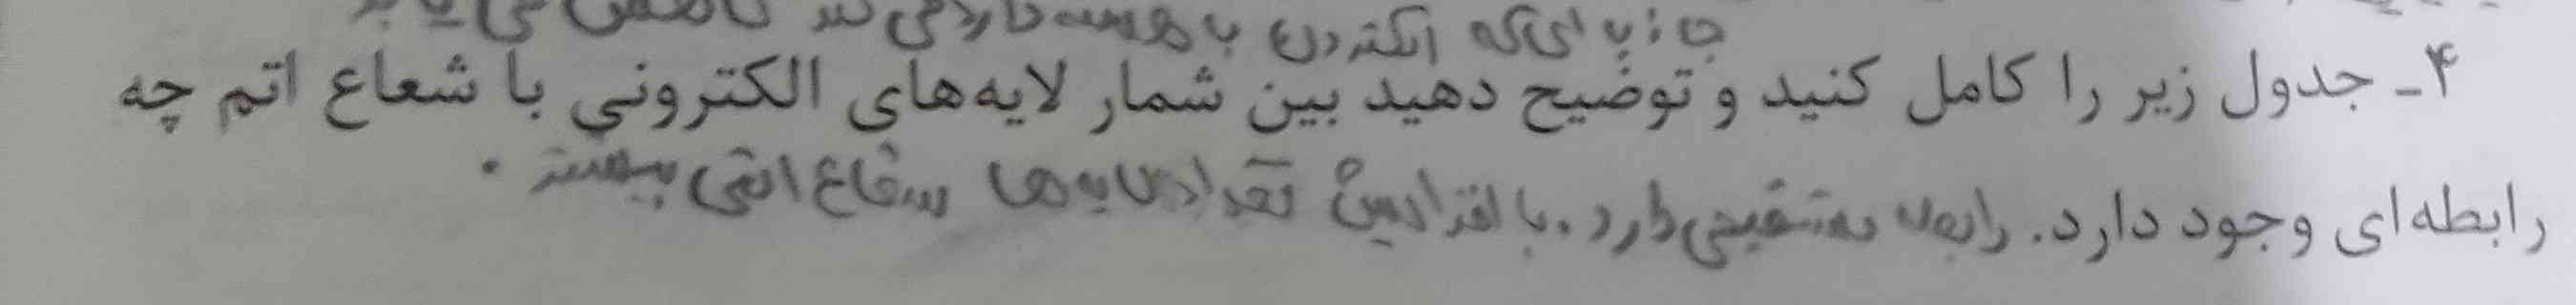 جاذبه ای که الکترون با هسته دارد می کند کاهش می یابد
۴ـ جدول زیر را کامل کنید و توضیح دهید بین شمار لایه‌های الکترونی با شعاع اتم چه
رابطه‌ای وجود دارد. رابطه مستقیمی دارد. با افزایش تعداد لایه ها شعاع اتمی بیشتر .